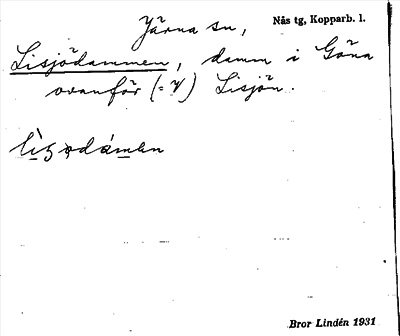 Järna sn, Nås tg, Kopparb. l.
Lisjödammen, damm i Göna
ovanför (= V) Lisjön.
Bror Lindén 1931